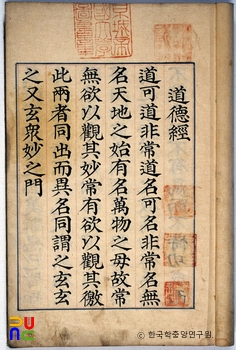 道德經
道可道非常道名可名非常名無
名天地之始有名萬物之母故常
無欲以觀其妙常有欲以觀其徼
此兩者同出而異名同謂之玄玄
之又玄衆妙之門
ⓒ 한국학중앙연구원